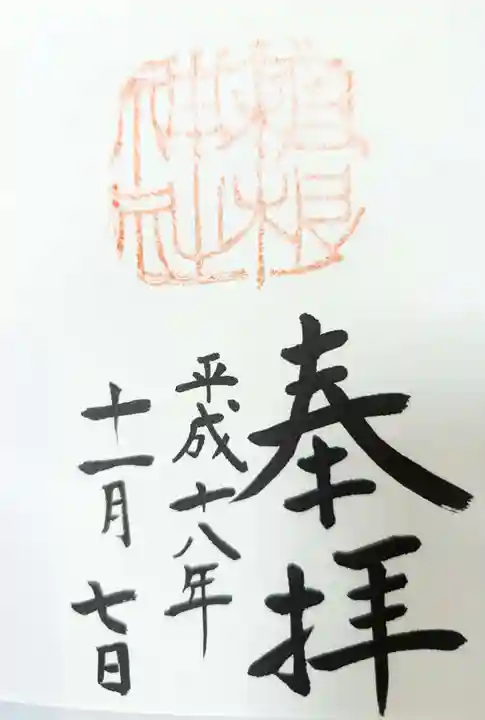 根
神社
奉拝
平成十八年
十一月七日